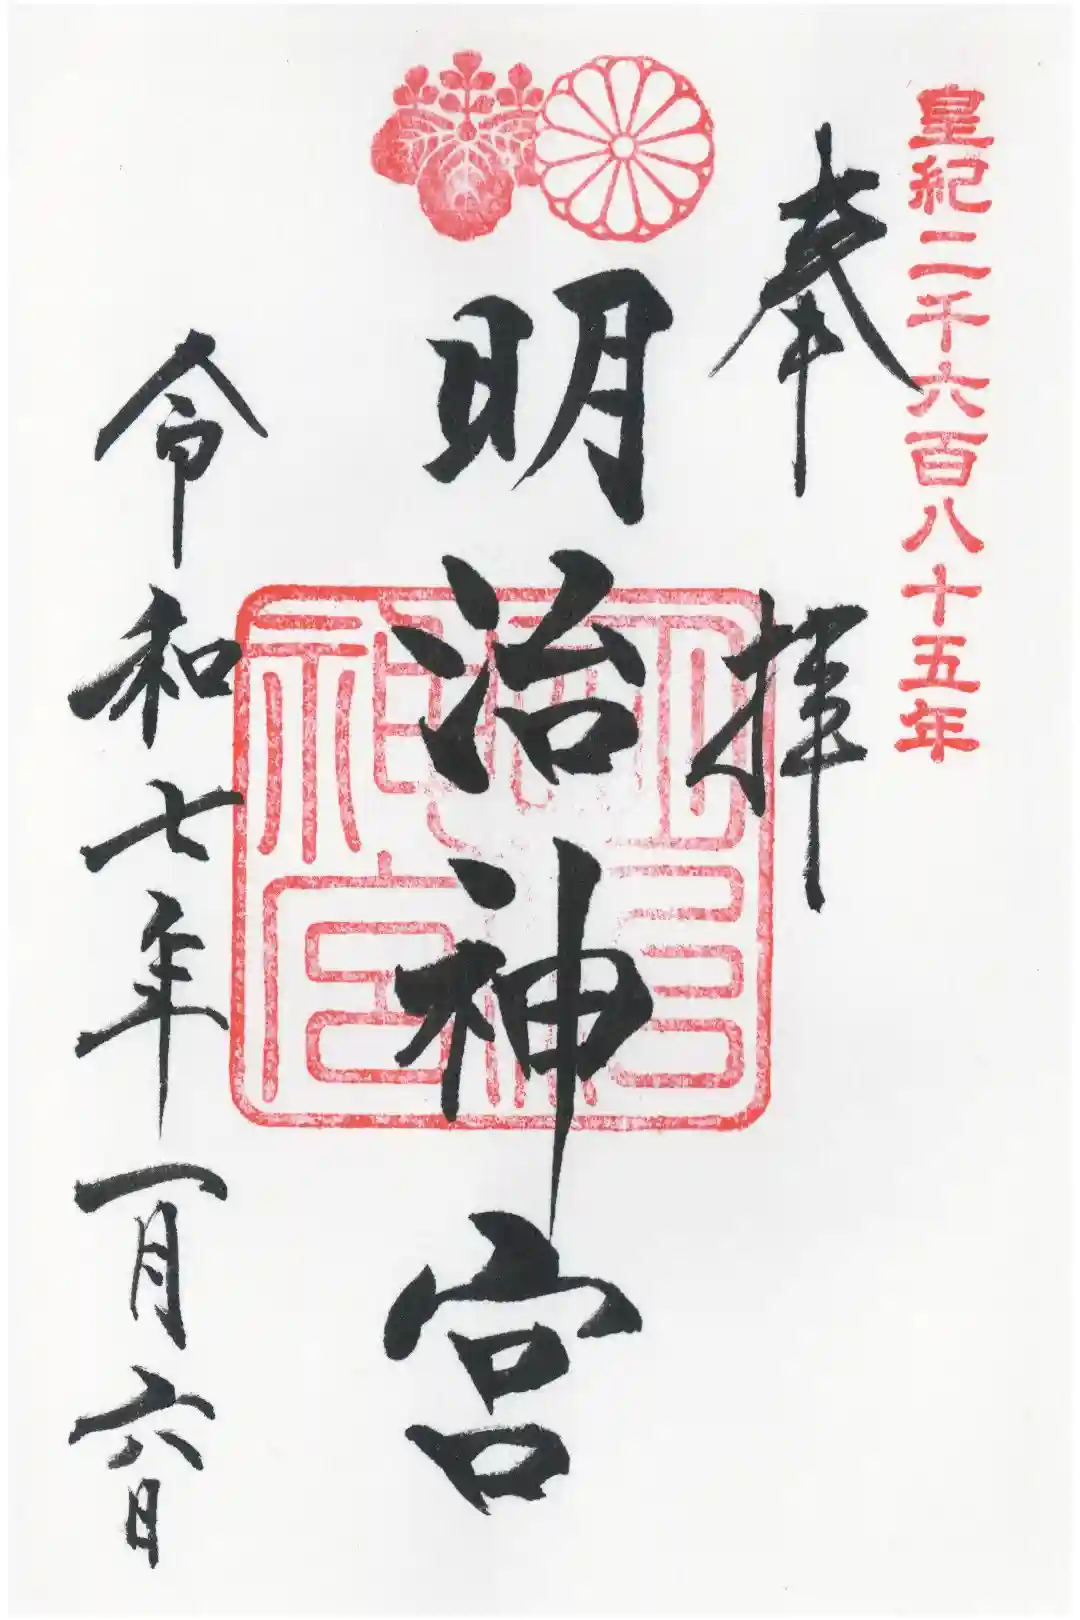 皇紀二千六百八十五年
奉拝
明治神宮
明治神宮
令和七年一月六日